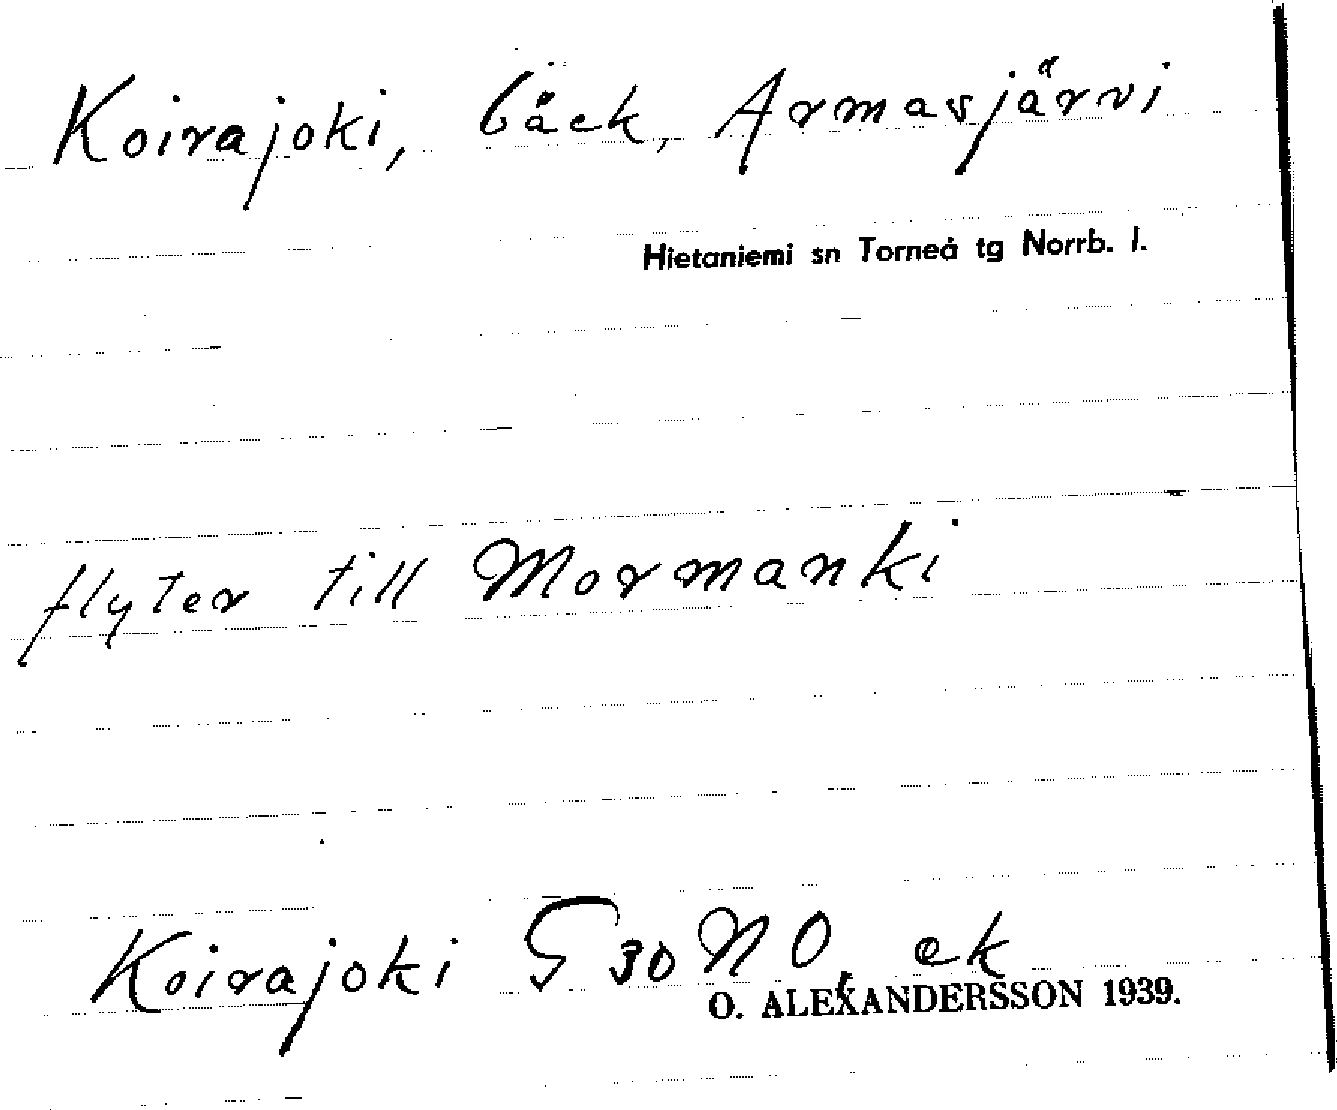 Koirajoki, bäck, Armasjärvi
Hietaniemi sn Torneå tg Norrb. l.
flyter till Mormanki
Koirajoki G 30 NO, ek
O. ALEXANDERSSON 1939.